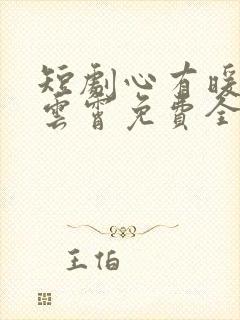 短劇心有暖
雲霄免費全
王怕